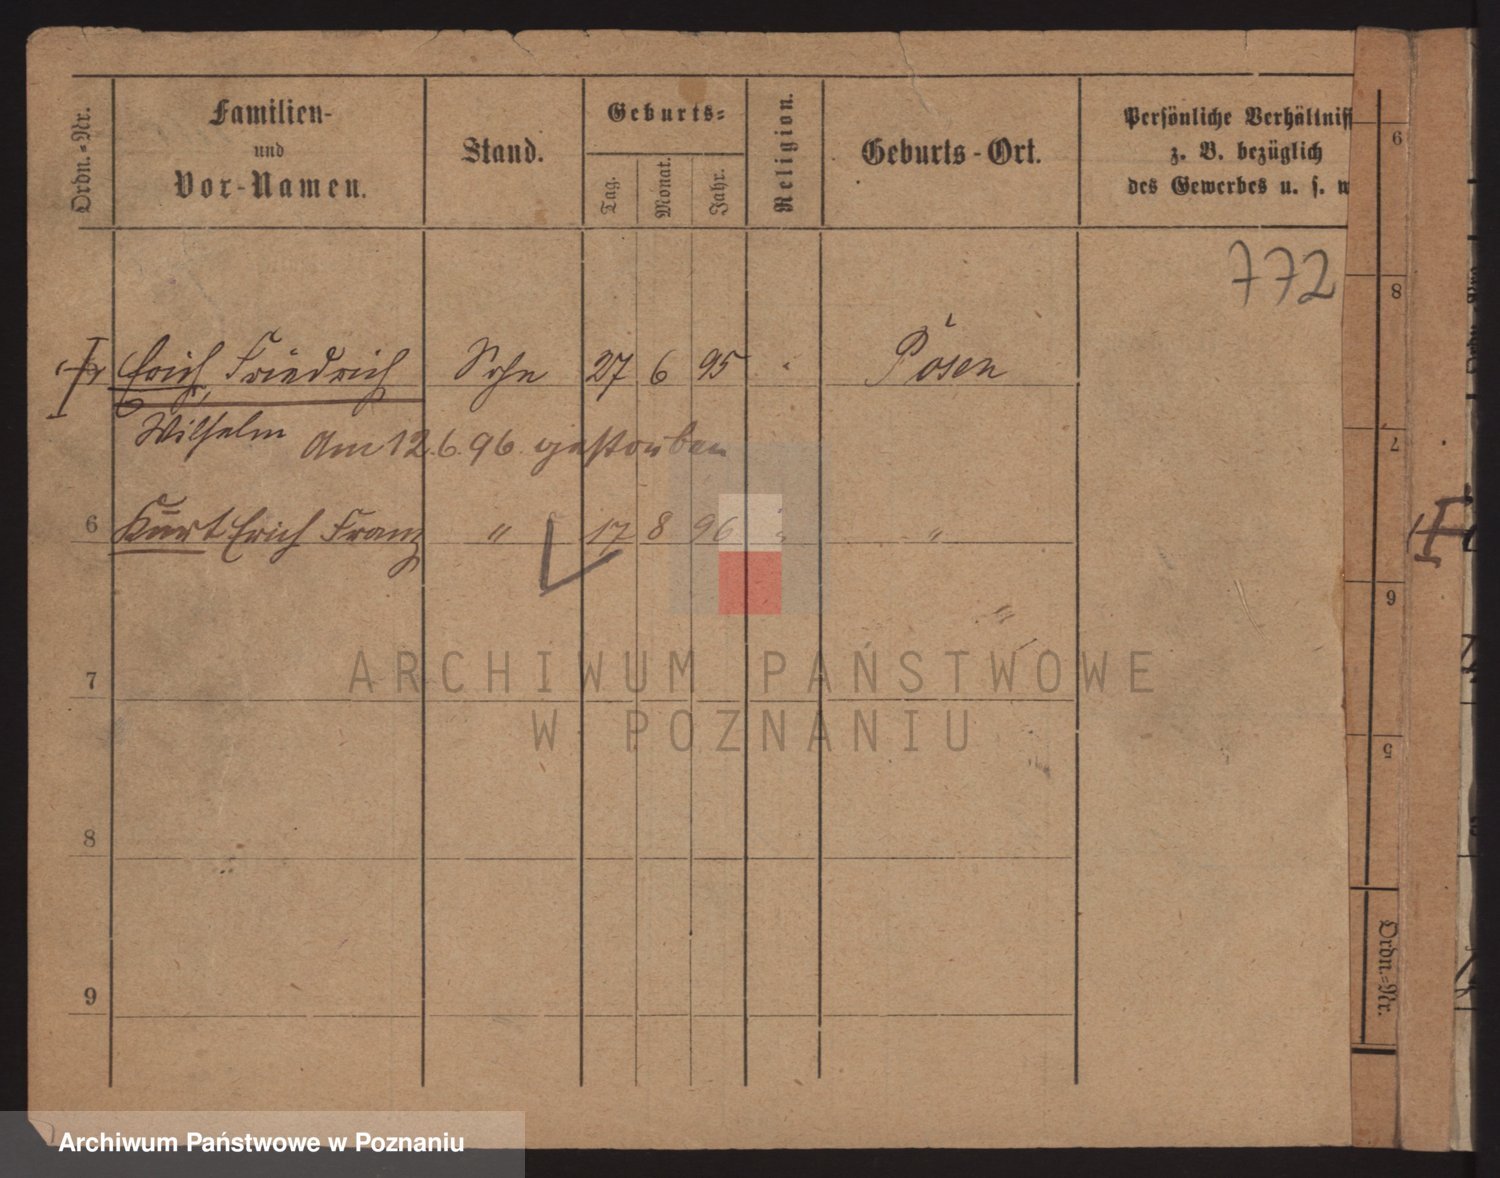 Ordn.=Nr.
Familien-
und
Vor-Namen.
Stand.
Geburts=
Tag.
Monat.
Jahr.
Religion.
Geburts-Ort.
Persönliche Verhältniss
z. B. bezüglich
des Gewerbes u. s. w
772
Erich, Friedrich Sohn 27 6 95 Posen
Wilhelm Am 12.6.96. gestorben
6 Kurt Erich Franz " 17 8 96 " "
7
8
9
9
8
7
6
5
Ordn.=Nr.
ARCHIWUM PAŃSTWOWE
W POZNANIU
Archiwum Państwowe w Poznaniu